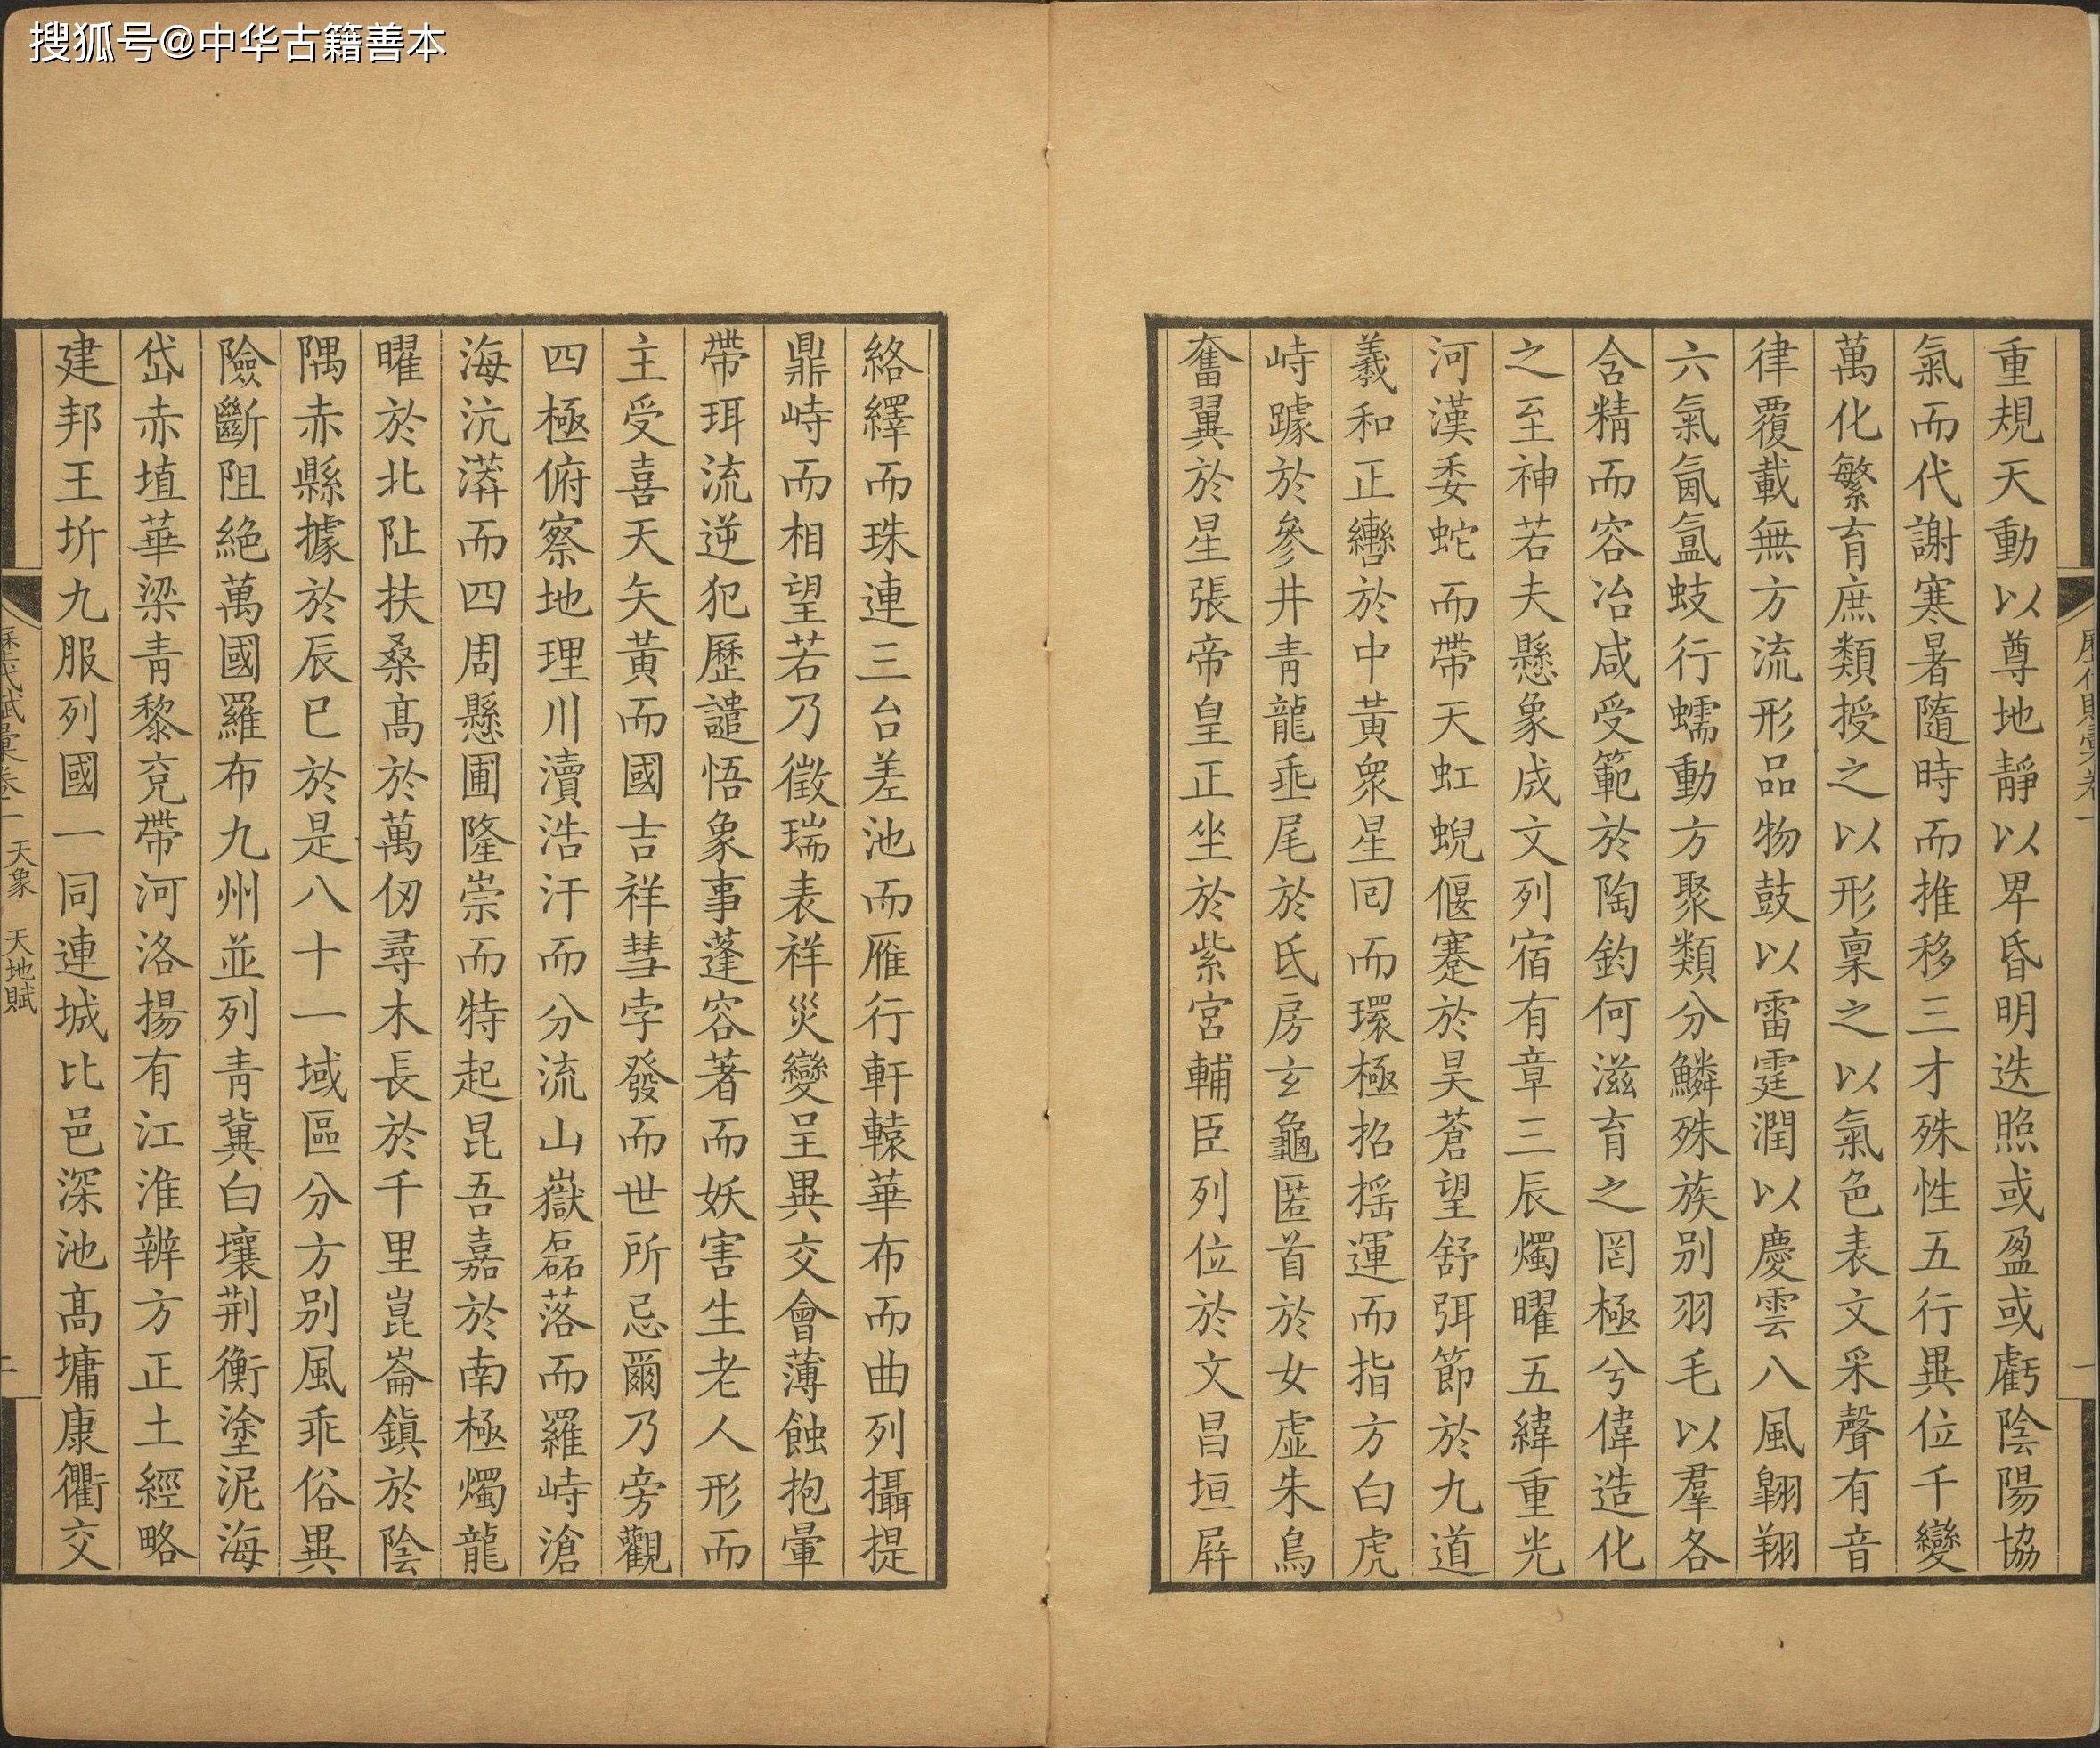 搜狐号@中华古籍善本
重規天動以尊地靜以卑昏明迭照或盈或虧陰陽協
氣而代謝寒暑隨時而推移三才殊性五行異位千變
萬化繁育庶類授之以形稟之以氣色表文采聲有音
律覆載無方流形品物鼓以雷霆潤以慶雲八風翺翔
六氣氤氳蚑行蠕動方聚類分鱗殊族別羽毛以羣各
含精而容冶咸受範於陶鈞何滋育之罔極兮偉造化
之至神若夫懸象成文列宿有章三辰燭曜五緯重光
河漢委蛇而帶天虹蜺偃蹇於昊蒼望舒弭節於九道
羲和正轡於中黃衆星回而環極招搖運而指方白虎
峙踞於參井青龍垂尾於氐房玄龜匿首於女虛朱鳥
奮翼於星張帝皇正坐於紫宮輔臣列位於文昌垣屛
絡繹而珠連三台差池而雁行軒轅華布而曲列攝提
鼎峙而相望若乃徵瑞表祥災變呈異交會薄蝕抱暈
帶珥流逆犯歷譴悟象事蓬容著而妖害生老人形而
主受喜天矢黃而國吉祥彗孛發而世所忌爾乃旁觀
四極俯察地理川瀆浩汗而分流山嶽磊落而羅峙滄
海沆漭而四周懸圃隆崇而特起昆吾嘉於南極燭龍
曜於北阯扶桑高於萬仞尋木長於千里崑崙鎮於陰
隅赤縣據於辰巳於是八十一域區分方別風乖俗異
險斷阻絕萬國羅布九州並列青冀白壤荆衡塗泥海
岱赤埴華梁青黎兗帶河洛揚有江淮辨方正土經略
建邦王圻九服列國一同連城比邑深池高墉康衢交
天象 天地賦